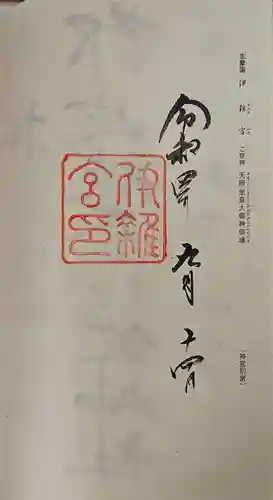 志摩國 伊雜宮 ご祭神 天照坐皇大御神御魂
(神宮別宮)
令和四年 九月 十四日
伊雜
宮印